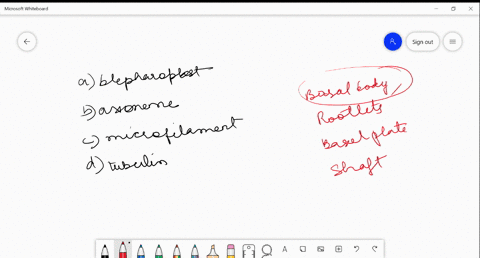 Microsoft Whiteboard
Sign out
a) blepharoplast
b) axoneme
c) microfilament
d) tubulin
Basal body
Rootlets
Basel plate
Shaft